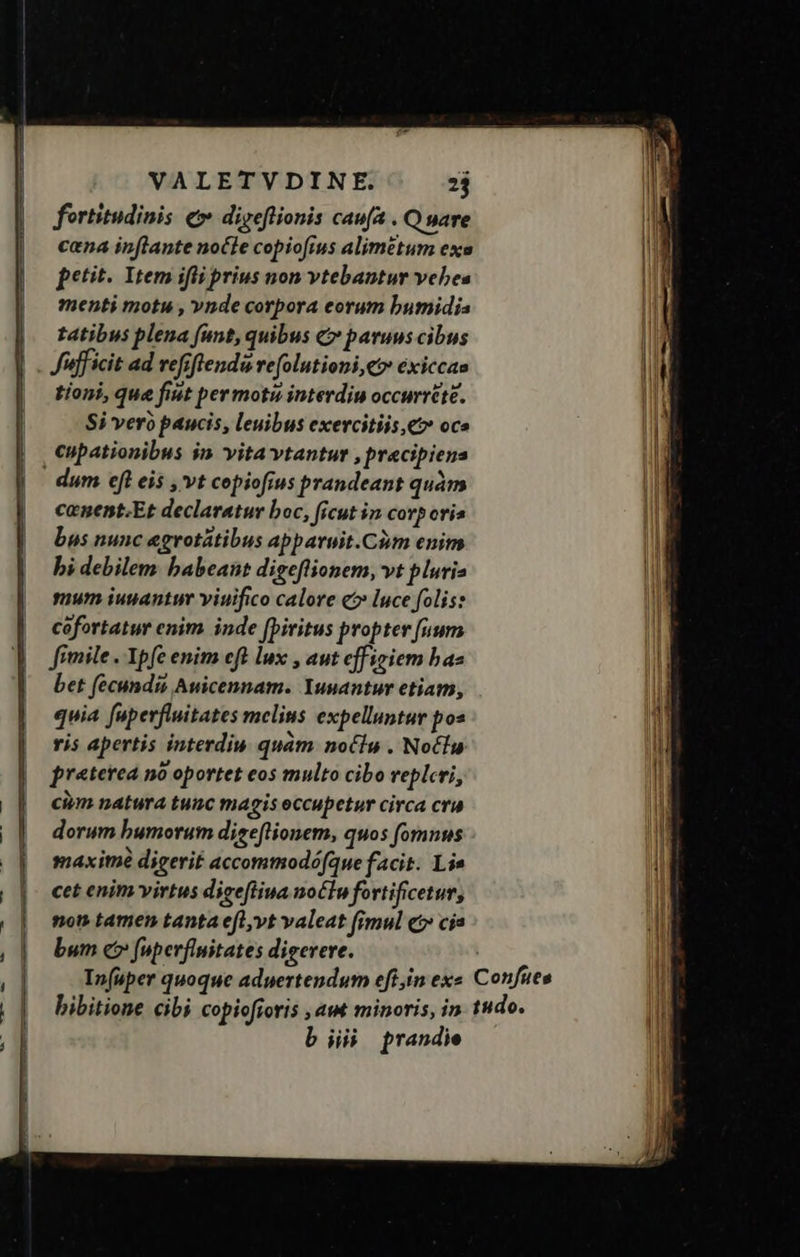 VALETVDINE. 23
fortitudinis & digeſtionis cauſa. Quare
cœna inſtante nocte copioſius alimẽtum ex-
petit. Item iſti prius non vtebantur vehe-
menti motu, vnde corpora eorum humidi-
tatibus plena ſunt, quibus & paruus cibus
ſufficit ad reſiſtendũ reſolutioni, & exicca-
tioni, que fiũt per motũ interdiu occurrẽte.
Si verò paucis, leuibus exercitijs, & oc-
cupationibus in vita vtantur, præcipien-
dum eſt eis, vt copioſius prandeant quàm
cœnent. Et declaratur hoc, ſicut in corpori-
bus nunc ægrotãtibus apparuit. Cùm enim
hi debilem habeant digeſtionem, vt pluri-
mum iuuantur viuifico calore & luce ſolis:
cõfortatur enim inde ſpiritus propter ſuum
ſimile. Ipſe enim eſt lux, aut effigiem ha-
bet ſecundũ Auicennam. Iuuantur etiam,
quia ſuperfluitates melius expelluntur po-
ris apertis interdiu quàm noctu. Noctu
præterea nõ oportet eos multo cibo repleri,
cùm natura tunc magis occupetur circa cru
dorum humorum digeſtionem, quos ſomnus
maximè digerit accommodóſque facit. Li-
cet enim virtus digeſtiua noctu fortificetur,
non tamen tanta eſt, vt valeat ſimul & ci-
bum & ſuperfluitates digerere.
Inſuper quoque aduertendum eſt, in ex- Conſue-
hibitione cibi copioſioris, aut minoris, in tudo.
b iiij prandio